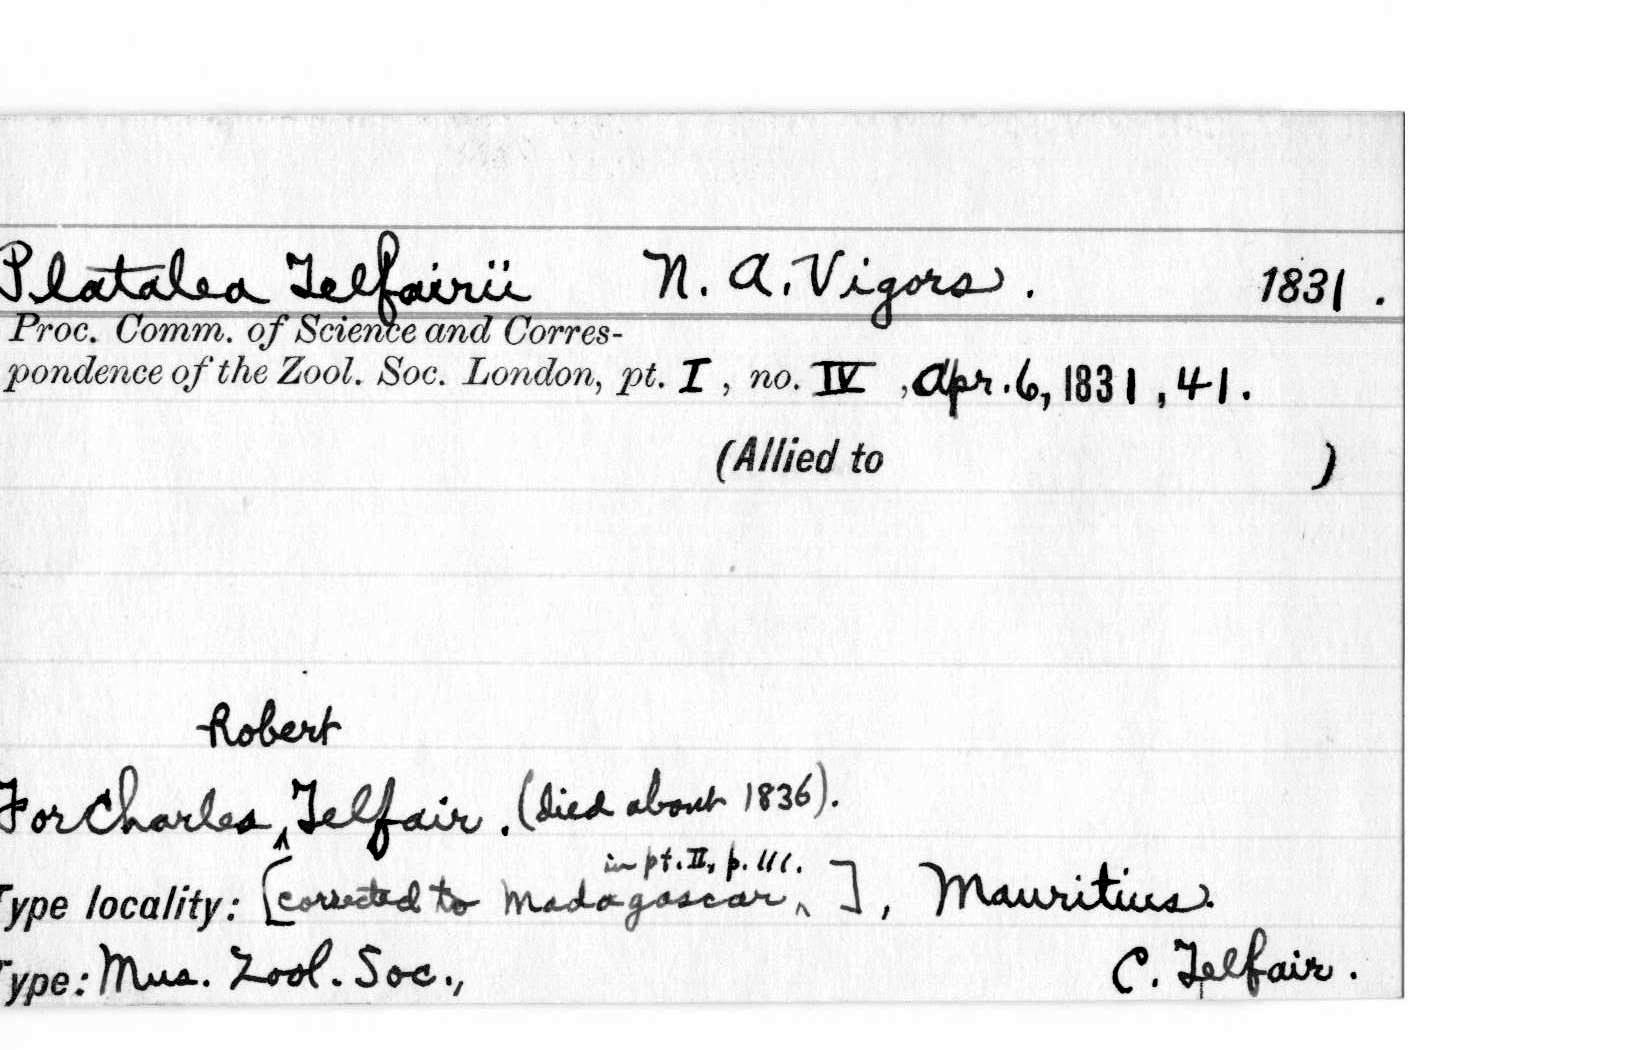 Platalea Telfairii N. A. Vigors. 1831.
Proc. Comm. of Science and Corres-
pondence of the Zool. Soc. London, pt. I, no. IV, Apr. 6, 1831, 41.
(Allied to )
Robert
For Charles ‸ Telfair. (died about 1836).
in pt. II, p. 111.
Type locality: [corrected to Madagascar ‸ ], Mauritius.
Type: Mus. Zool. Soc., C. Telfair.